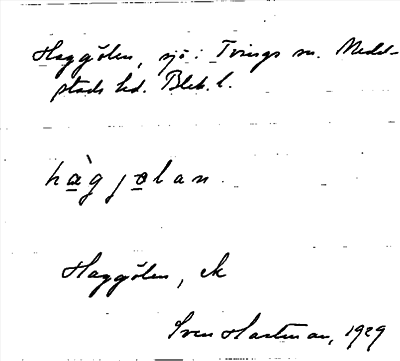 Haggölen, sjö i Tvings sn. Medel-
stads hd. Blek. l.
hàg jølan.
Haggölen, ek
Sven Hartman, 1929